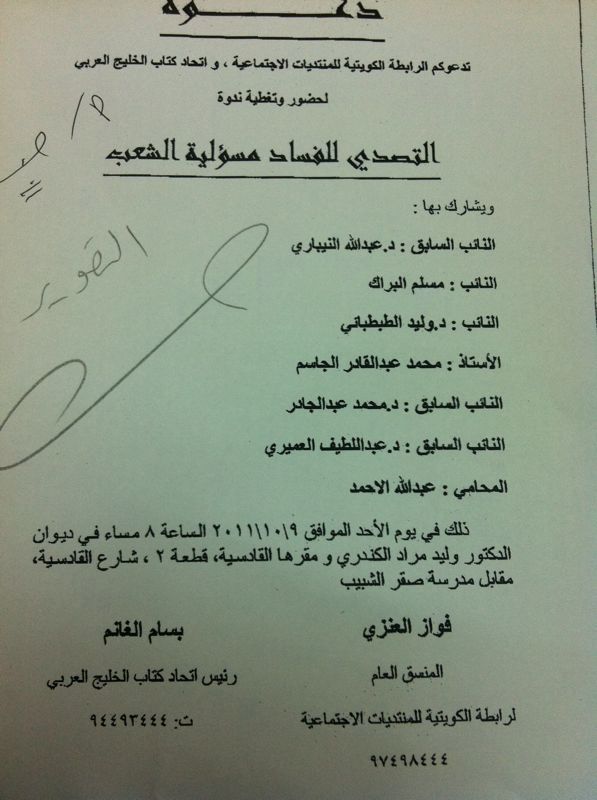 دعوة
تدعوكم الرابطة الكويتية للمنتديات الاجتماعية ، و اتحاد كتاب الخليج العربي
لحضور وتغطية ندوة
التصدي للفساد مسؤلية الشعب
ويشارك بها :
النائب السابق : د.عبدالله النيباري
النائب : مسلم البراك
النائب : د.وليد الطبطبائي
الأستاذ : محمد عبدالقادر الجاسم
النائب السابق : د.محمد عبدالجادر
النائب السابق : د.عبداللطيف العميري
المحامي : عبدالله الاحمد
التصوير
ذلك في يوم الأحد الموافق ٩\١٠\٢٠١١ الساعة ٨ مساء في ديوان
الدكتور وليد مراد الكندري و مقرها القادسية، قطعة ٢ ، شارع القادسية،
مقابل مدرسة صقر الشبيب
فواز العنزي
المنسق العام
لرابطة الكويتية للمنتديات الاجتماعية
٩٧٤٩٨٤٤٤
بسام الغانم
رئيس اتحاد كتاب الخليج العربي
ت: ٩٤٤٩٣٤٤٤